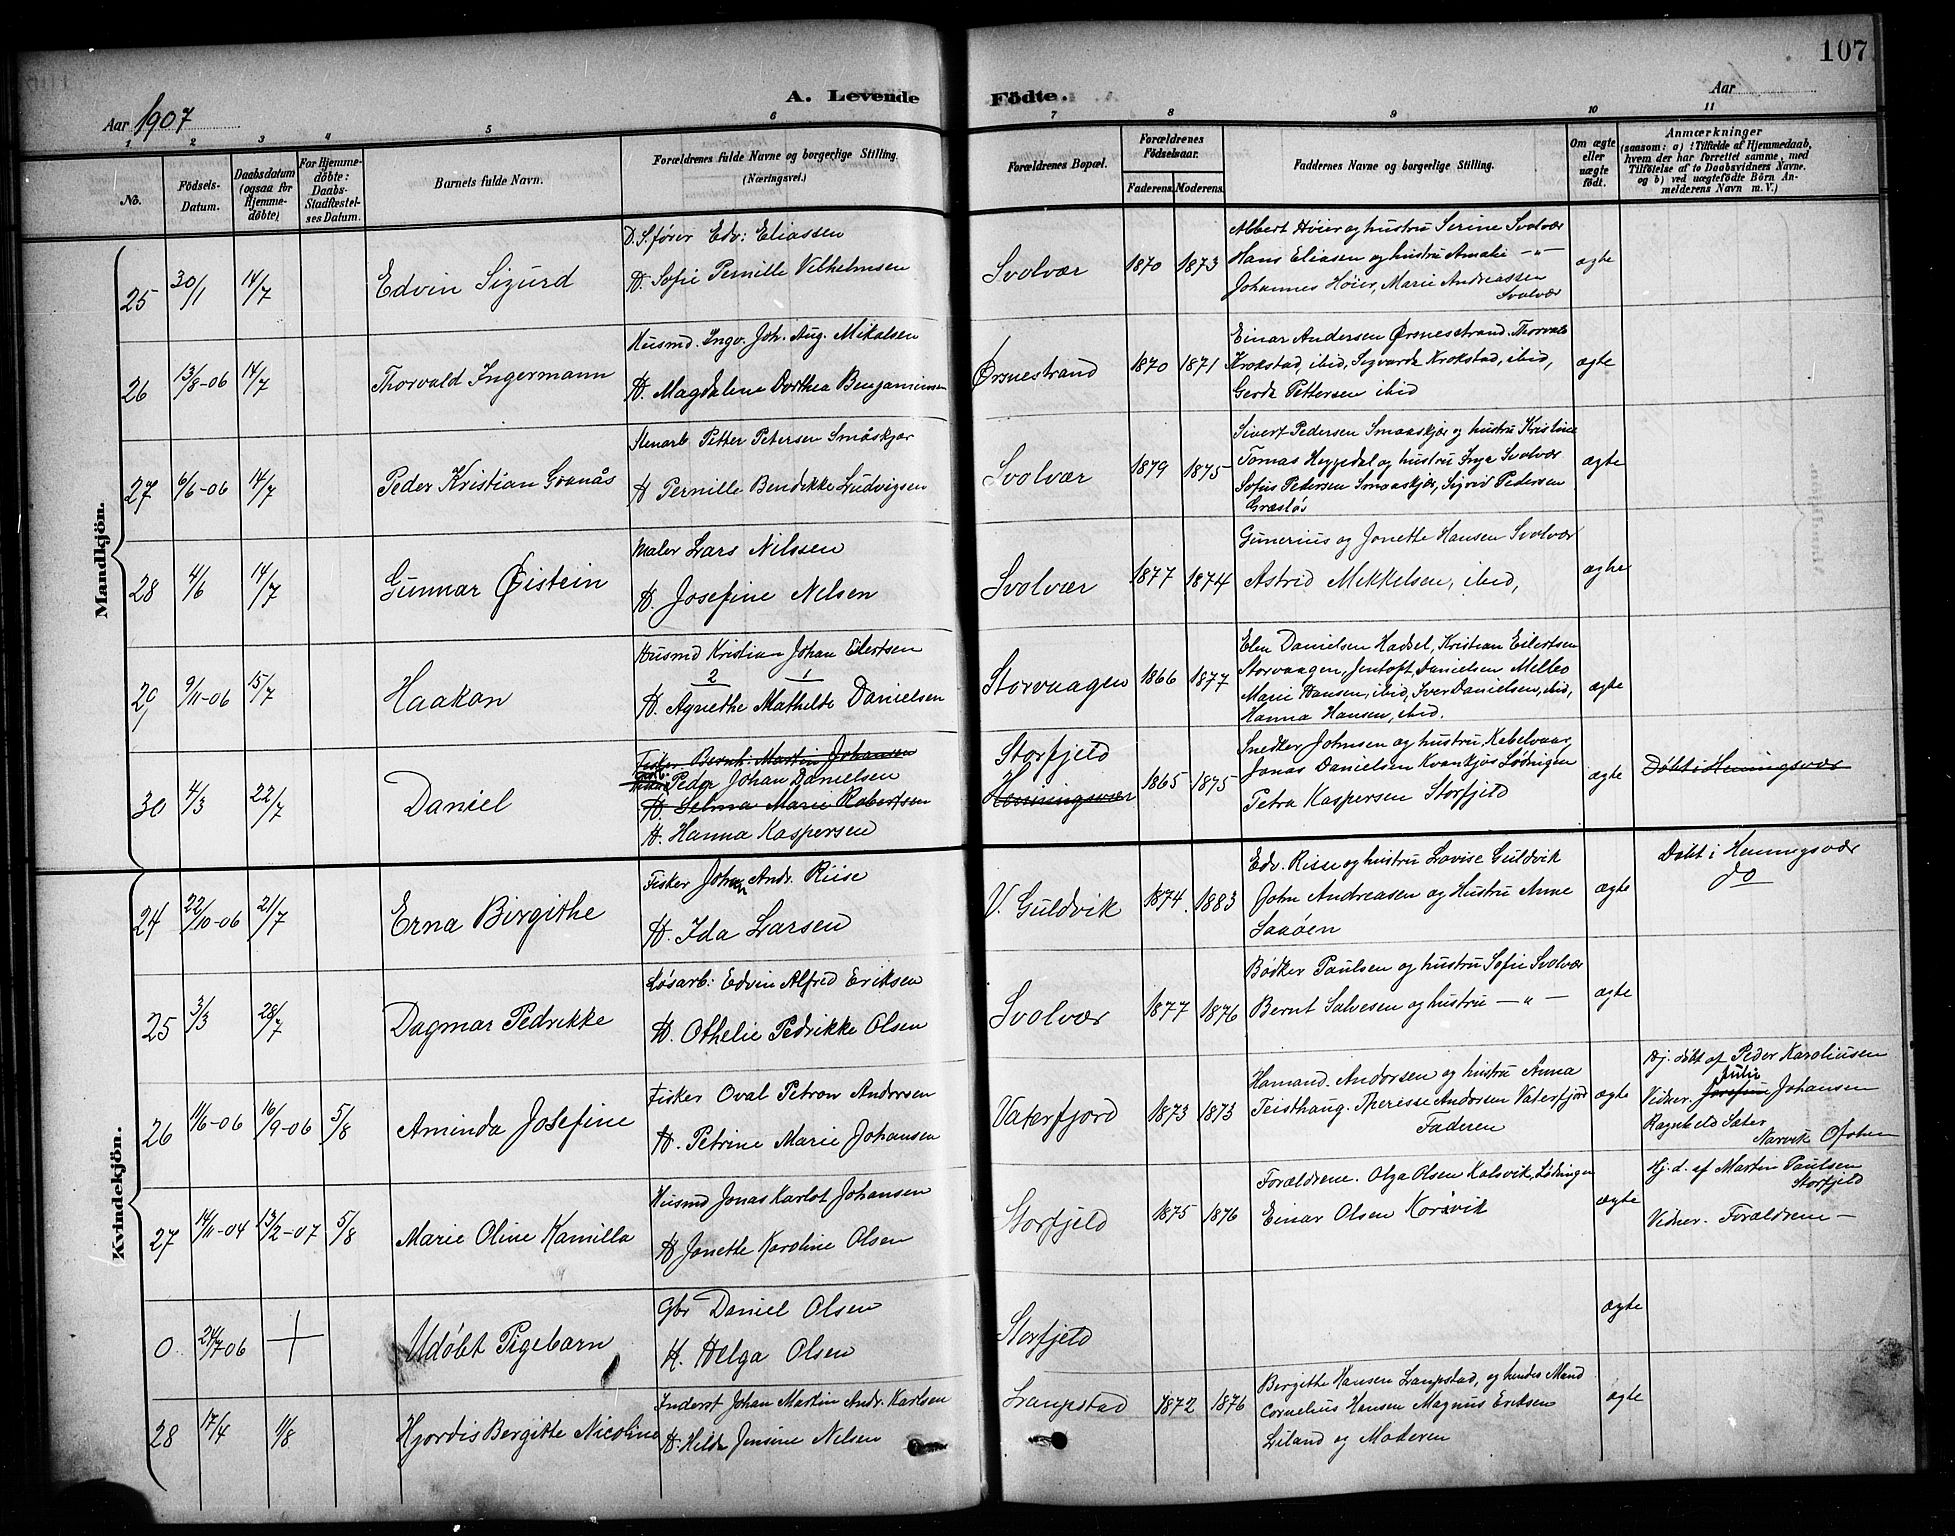 107
A. Levende Födte.
Aar 1907
Aar
1 2 3 4 5 6 7 8 9 10 11
No.
Födsels-Datum.
Daabsdatum (ogsaa for Hjemme-döbte)
For Hjemme-döbte: Daabs-Stadfæstel-ses Datum.
Barnets fulde Navn.
Forældrenes fulde Navne og borgerlige Stilling. (Næringsvei.)
Forældrenes Bopæl.
Forældrenes Födselsaar.
Faderens. Moderens.
Faddernes Navne og borgerlige Stilling.
Om ægte eller uægte født.
Anmærkninger
(saasom: a) i Tilfælde af Hjemmedaab, hvem der har forrettet samme, med Tilföielse af to Daabsvidners Navne. og b) ved uægtefödte Börn Anmelderens Navn m. V.)
Mandkjön.
25 30/1 14/7 Edvin Sigurd
D.S.fører Edv: Eliassen
H. Sofie Pernille Vilhelmsen
Svolvær 1870 1873
Albert Høier og hustru Serine Svolvær
Hans Eliasen og hustru Amalie -"-
Johannes Høier, Marie Andreassen
Svolvær
ægte
26 13/8-06 14/7 Thorvald Ingermann
Husmd. Ingv. Joh. Aug. Mikalsen
H. Magdalene Dorthea Benjaminsen
Ørsnestrand 1870 1871
Einar Andersen Ørsnestrand. Thorvald
Krokstad, ibid, Sigvarda Krokstad, ibid,
Gerda Pettersen ibid
ægte
27 6/6-06 14/7 Peder Kristian Granås
Stenarb Petter Petersen Småskjær
H Pernille Bendikke Ludvigsen
Svolvær 1879 1875
Sivert Pedersen Smaaskjær og hustru Kristine
Tomas Heggedal og hustru Inga Svolvær
Sofus Pedersen Smaaskjær, Sigrid Pedersen
ægte
28 4/6 14/7 Gunnar Øistein
Maler Lars Nilssen
H. Josefine Nelsen
Svolvær 1877 1874
Gunerius og Jonette Hansen Svolvær
Astrid Mikkelsen, ibid,
ægte
29 9/11-06 15/7 Haakon
Husmd Kristian Johan Eilertsen
2 1
H. Agnethe Mathilde Danielsen
Storvaagen 1866 1877
Elen Danielsen Hadsel, Kristian Eilertsen
Storvaagen, Jentoft Danielsen Melbo
Marie Hansen, ibid, Iver Danielsen, ibid,
Hanna Hansen, ibid.
ægte
30 4/3 22/7 Daniel
Fisker Bernh. Martin Johansen
Peder Johan Danielsen
H. Selma Marie Robertsen
H. Hanna Kaspersen
Storfjeld
Henningsvær
1865 1875
Snedker Johnsen og hustru, Kabelvaag,
Jonas Danielsen Kvankjos Lødingen
Petra Kaspersen Storfjeld
ægte
Døbt i Henningsvær
Kvindekjön.
24 22/10-06 21/7 Erna Birgithe
Fisker Johan Andr. Riise
H. Ida Larsen
V. Guldvik 1874. 1883
Edv. Risse og hustru Lovise Guldvik
John Andreasen og Hustru Anne
ægte
Døbt i Henningsvær
do
25 3/3 28/7 Dagmar Pedrikke
Løsarb: Edvin Alfred Eriksen
H. Othelie Pedrikke Olsen
Svolvær 1877 1876
Bødker Paulsen og hustru Sofie Svolvær
Bernt Salvesen og hustru -"-
ægte
26 11/6-06 16/9-06 5/8 Aminda Josefine
Fisker Oval Petron Andersen
H. Petrine Marie Johansen
Vaterfjord 1873 1873
Hamand. Andersen og hustru Anna
Teisthaug. Therese Andersen Vaterfjord
Faderen
ægte
Hj. døbt af Peder Karoliusen
Julie
Vidner. Josefine Johansen
Ragnhild Sæter
Narvik Ofoten
27 14/11-04 13/2-07 5/8 Marie Oline Kamilla
Husmd Jonas Karlot Johansen
H Jonette Karoline Olsen
Storfjeld 1875 1876
Forældrene. Olga Olsen Kalsvik, Lødingen
Einar Olsen Korsvik
ægte
Hj. d. af Martin Paulsen
Storfjeld
Vidner. Forældrene -
0 24/7 06 + Udøbt Pigebarn
Gbr Daniel Olsen
H. Helga Olsen
Storfjeld
ægte
28 17/4 11/8 Hjordis Bergitte Nicoline
Inderst Johan Martin Andr. Karlsen
H. Hilda Jensine Nelsen
Laupstad 1872 1876
Bergitte Hansen Laupstad, og hendes Mand
Cornelius Hansen Magnus Eriksen
Liland og Moderen
ægte